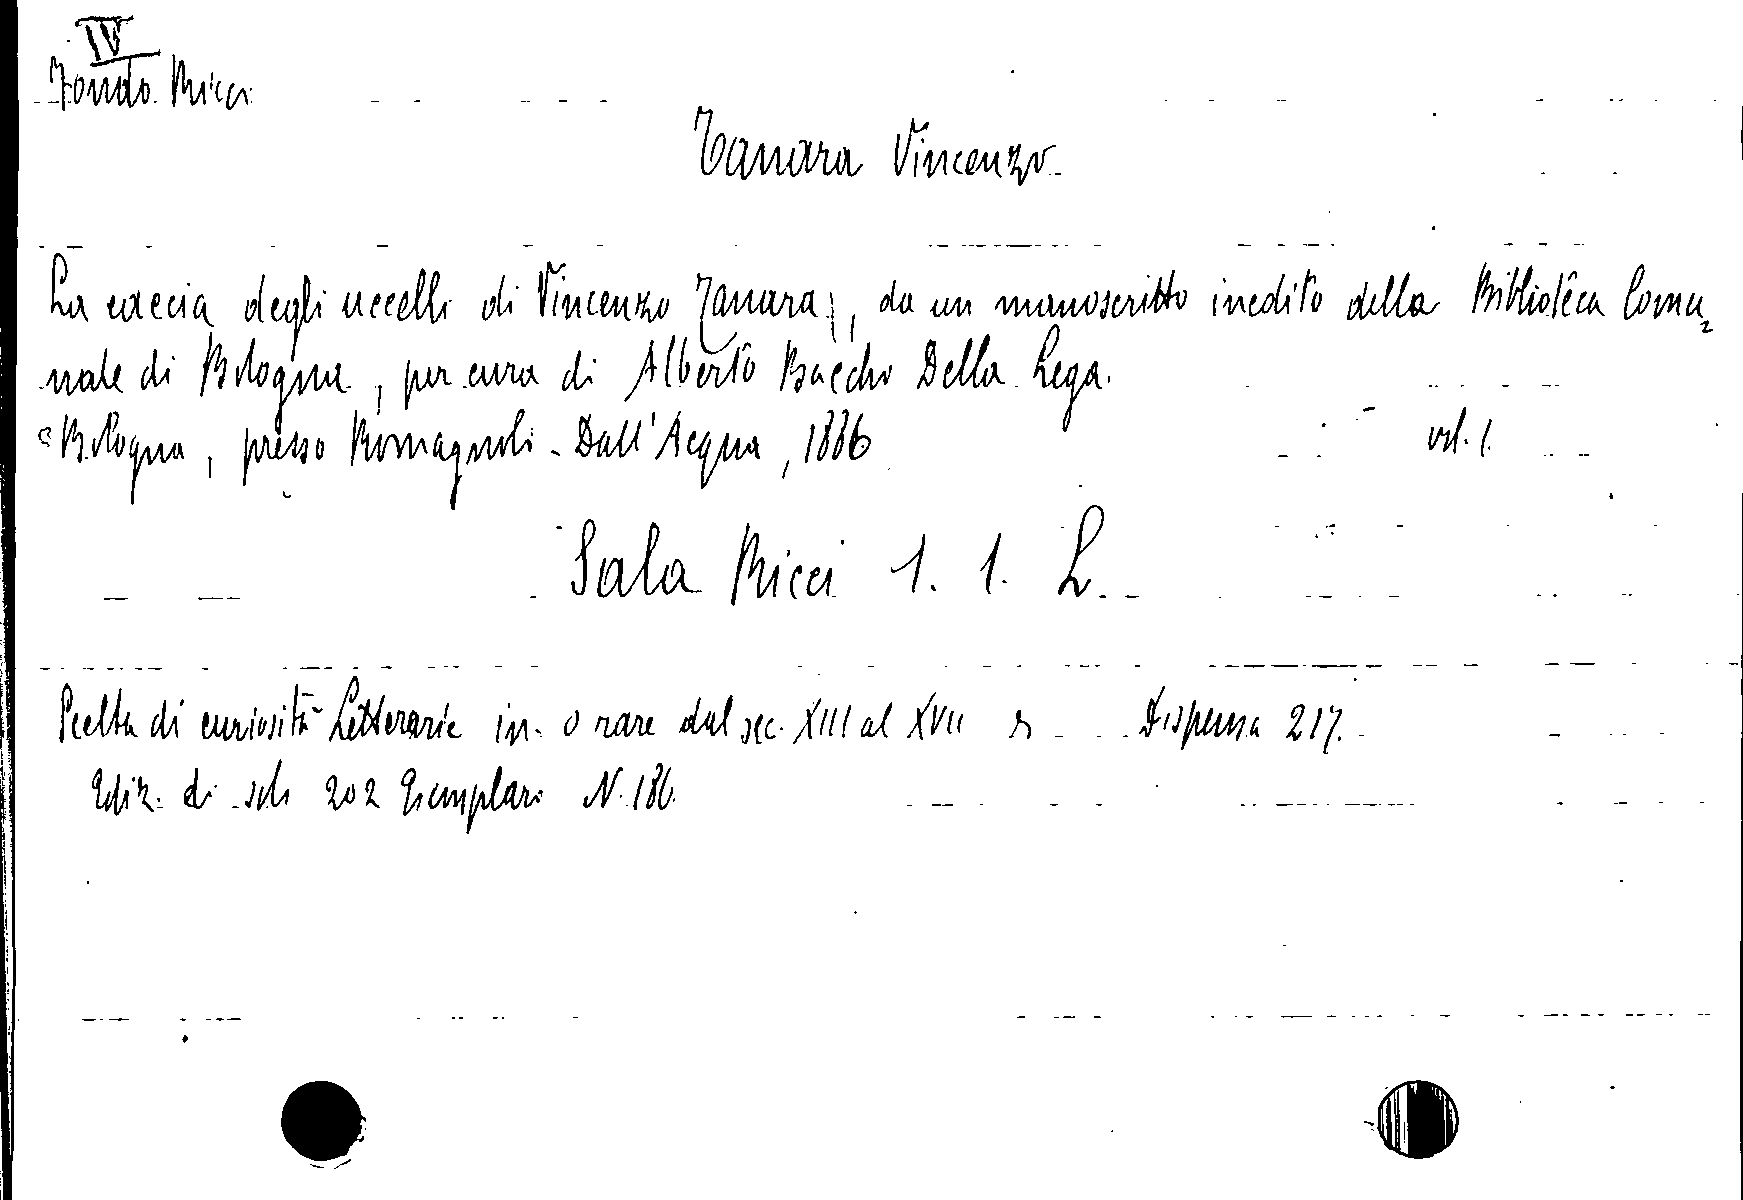 IV
Fondo Ricci
Tanara Vincenzo
La caccia degli uccelli di Vincenzo Tanara, da un manoscritto inedito della Biblioteca Comu=
nale di Bologna, per cura di Alberto Bacchi Della Lega.
Bologna, presso Romagnoli-Dall'Acqua, 1886 vol. 1.
Sala Ricci 1. 1. L.
Scelta di curiosità Letterarie in. o rare dal sec. XIII al XVII Dispensa 217.
Ediz. di soli 202 Esemplari N. 186.